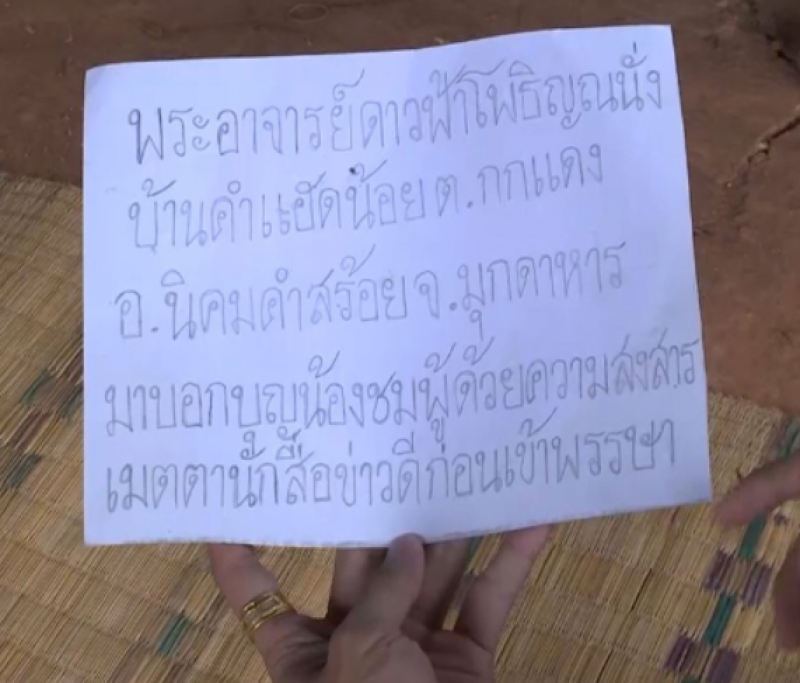 พระอาจารย์ดาวฟ้าโพธิญณนั่ง
บ้านคำแฮัดน้อย ต.กกแดง
อ.นิคมคำสร้อย จ.มุกดาหาร
มาบอกบุญน้องชมพู่ด้วยความสงสาร
เมตตานั้กสื่อข่าวดีก่อนเข้าพรรษา